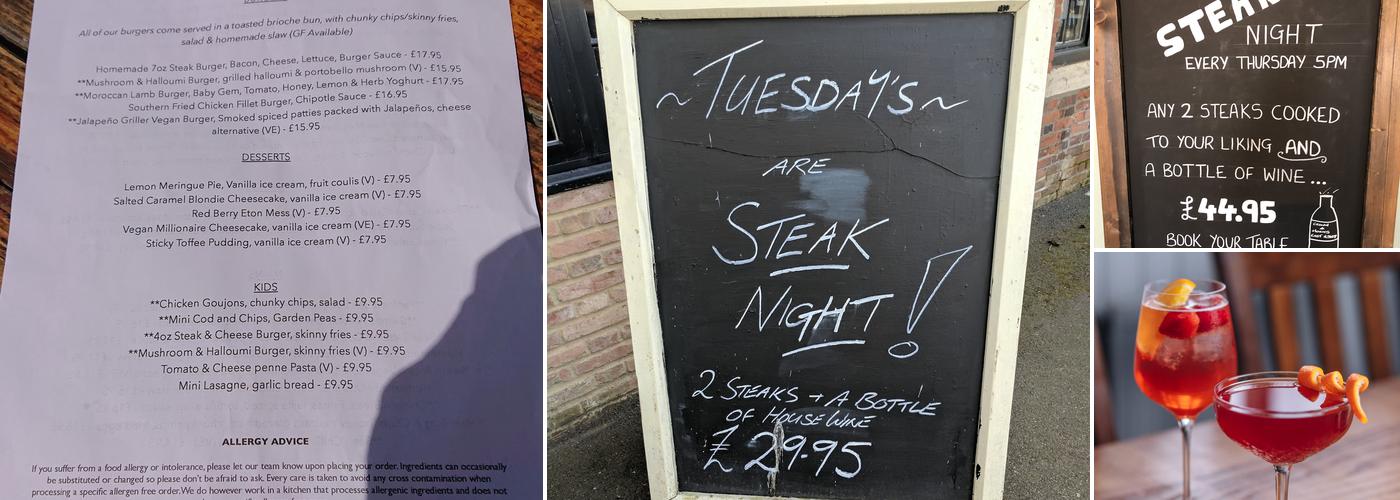 All of our burgers come served in a toasted brioche bun, with chunky chips/skinny fries,
salad & homemade slaw (GF Available)
Homemade 7oz Steak Burger, Bacon, Cheese, Lettuce, Burger Sauce - £17.95
**Mushroom & Halloumi Burger, grilled halloumi & portobello mushroom (V) - £15.95
**Moroccan Lamb Burger, Baby Gem, Tomato, Honey, Lemon & Herb Yoghurt - £17.95
Southern Fried Chicken Fillet Burger, Chipotle Sauce - £16.95
**Jalapeño Griller Vegan Burger, Smoked spiced patties packed with Jalapeños, cheese
alternative (VE) - £15.95
DESSERTS
Lemon Meringue Pie, Vanilla ice cream, fruit coulis (V) - £7.95
Salted Caramel Blondie Cheesecake, vanilla ice cream (V) - £7.95
Red Berry Eton Mess (V) - £7.95
Vegan Millionaire Cheesecake, vanilla ice cream (VE) - £7.95
Sticky Toffee Pudding, vanilla ice cream (V) - £7.95
KIDS
**Chicken Goujons, chunky chips, salad - £9.95
**Mini Cod and Chips, Garden Peas - £9.95
**4oz Steak & Cheese Burger, skinny fries - £9.95
**Mushroom & Halloumi Burger, skinny fries (V) - £9.95
Tomato & Cheese penne Pasta (V) - £9.95
Mini Lasagne, garlic bread - £9.95
ALLERGY ADVICE
If you suffer from a food allergy or intolerance, please let our team know upon placing your order. Ingredients can occasionally
be substituted or changed so please don't be afraid to ask. Every care is taken to avoid any cross contamination when
processing a specific allergen free order. We do however work in a kitchen that processes allergenic ingredients and does not
~ TUESDAY'S ~
ARE
STEAK
NIGHT!
2 STEAKS + A BOTTLE
OF HOUSE WINE
£29.95
STEAK
NIGHT
EVERY THURSDAY 5PM
ANY 2 STEAKS COOKED
TO YOUR LIKING AND
A BOTTLE OF WINE...
£44.95
BOOK YOUR TABLE